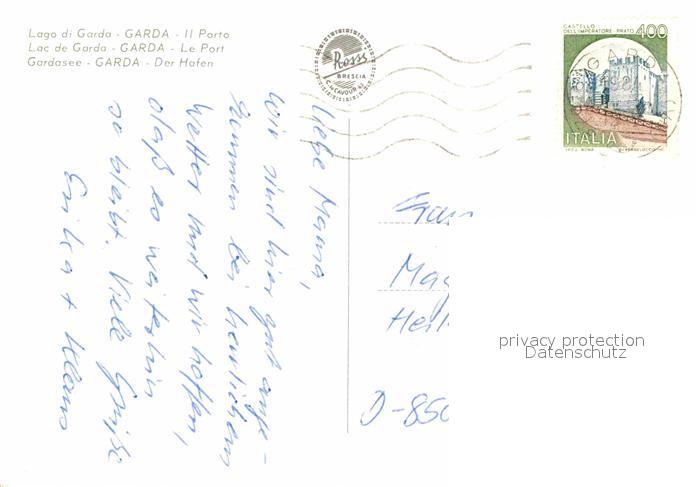 Lago di Garda - GARDA - Il Porto
Lac de Garda - GARDA - Le Port
Gardasee - GARDA - Der Hafen
Rossi
BRESCIA
C. CAVOUR 42
CASTELLO
DELL'IMPERATORE · PRATO
400
ITALIA
Liebe Mama,
wir sind hier gut ange-
kommen bei herrlichem
Wetter und wir hoffen,
daß es weiterhin
so bleibt. Viele Grüße
Erika + Klaus
Frau
Mag
Heil
D-850
privacy protection
Datenschutz